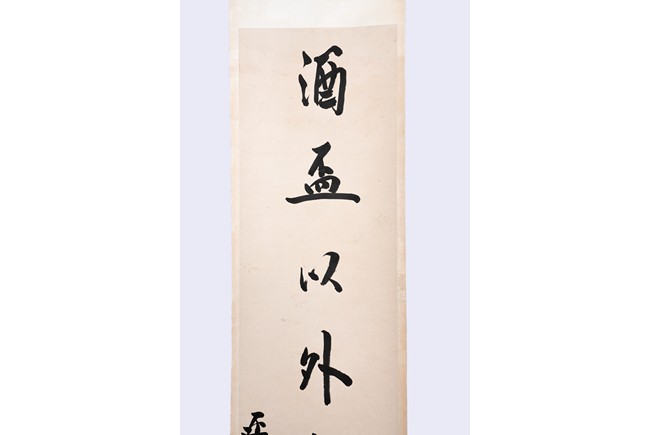 酒盃以外